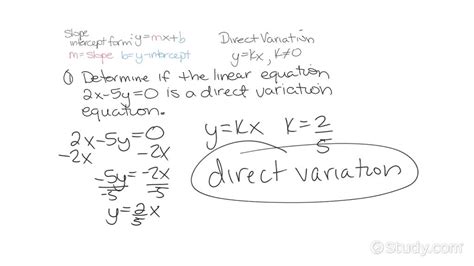 Slope intercept form: y=mx+b
m=slope b=y-intercept
Direct Variation
y=kx, k≠0
① Determine if the linear equation
2x-5y=0 is a direct variation
equation.
2x-5y=0
-2x -2x
-5y=-2x
-5 -5
y=2/5 x
y=kx k=2/5
direct variation
Study.com